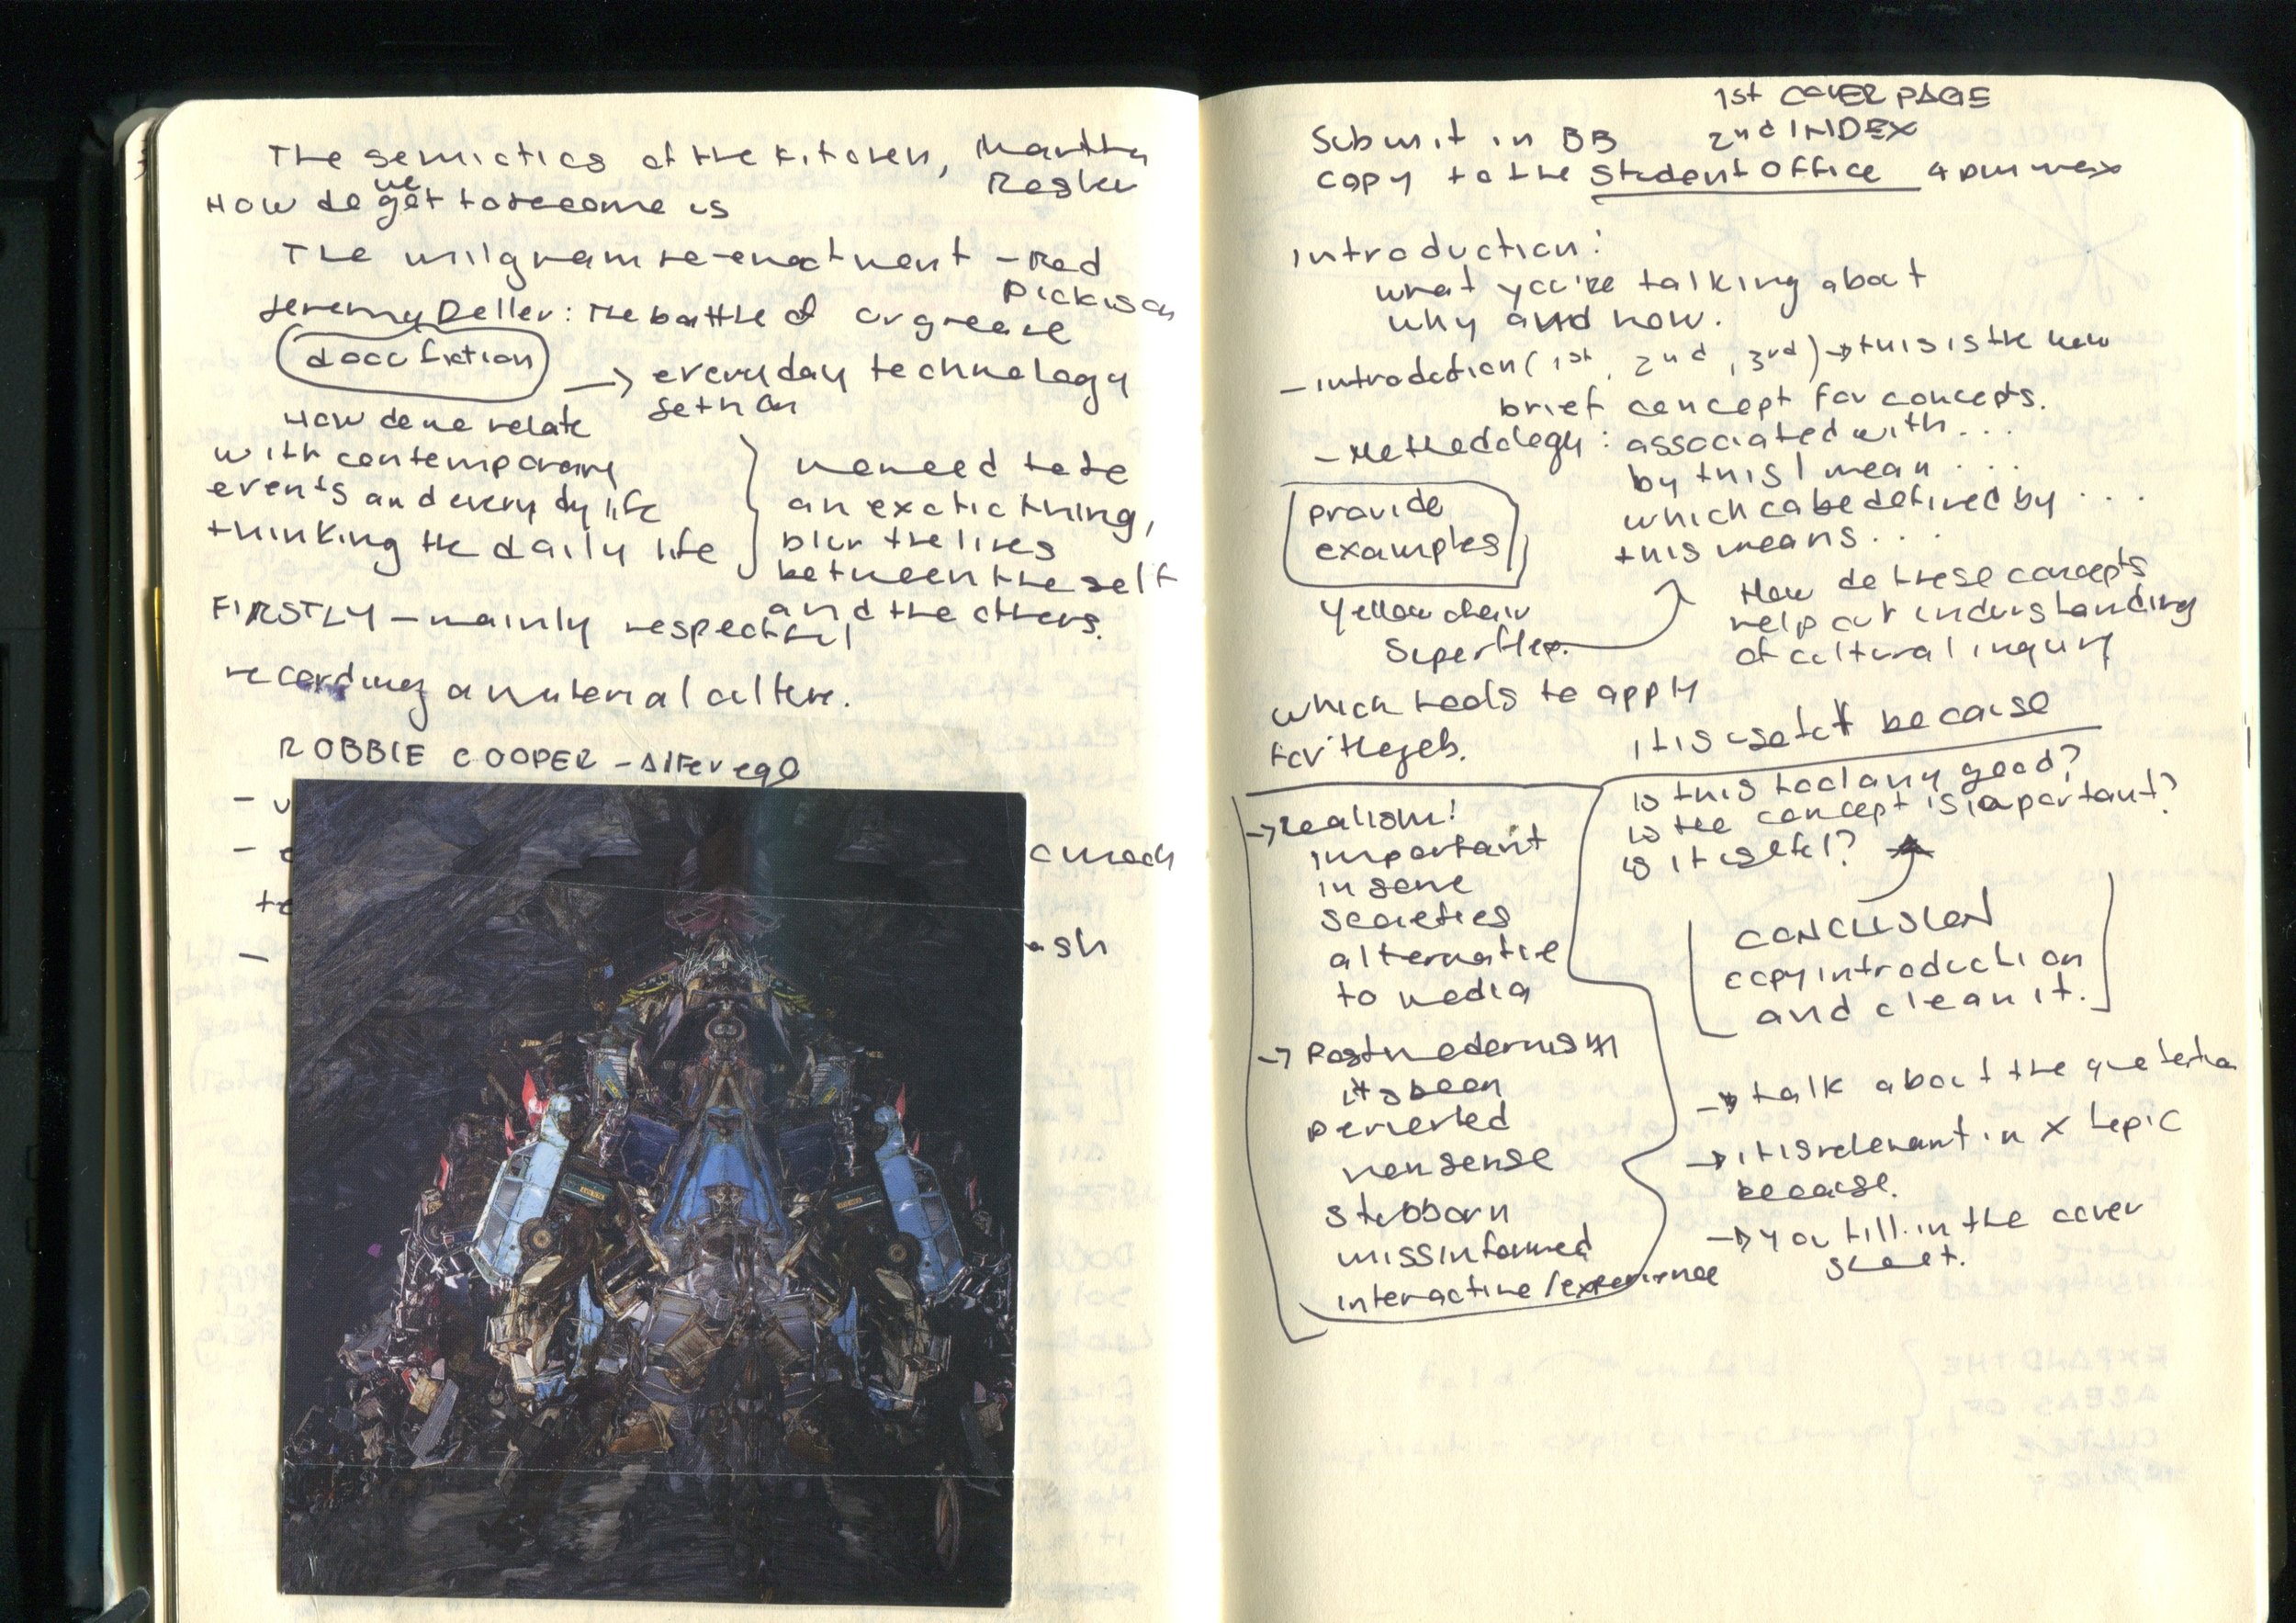 The semiotics of the kitchen, Martha
Rosler
How do we get to become is
The milgram re-enactment - Rod
Dickinson
Jeremy Deller: The battle of orgreave
docu fiction
→ everyday technology
How do we relate
with contemporary
events and every dy life
thinking the daily life
no need to be
an exotic thing,
blur the lines
between the self
and the others.
FIRSTLY - mainly respectful
recording a material culture.
ROBBIE COOPER - Alter ego
1st COVER PAGE
Submit in BB 2nd INDEX
copy to the Student Office 4 pm max
introduction:
what you're talking about
why and how.
- introduction (1st, 2nd, 3rd) → this is the how
brief concept for concepts.
- Methodology: associated with...
by this I mean...
which ca be defined by...
this means...
provide
examples
Yellow chair
Superflex.
How do these concepts
help our understanding
of cultural inquiry
which tools to apply
for theyeb.
it is useful because
is this tool any good?
is the concept is important?
is it useful?
→ Realism:
important
in some
societies
alternative
to media
CONCLUSION
copy introduction
and clean it.
→ Postmodernism
its been
perverted
nonsense
stubborn
missinformed
interactive/experience
→ talk about the
→ it is relevant in X topic
because.
→ You fill in the cover
sheet.